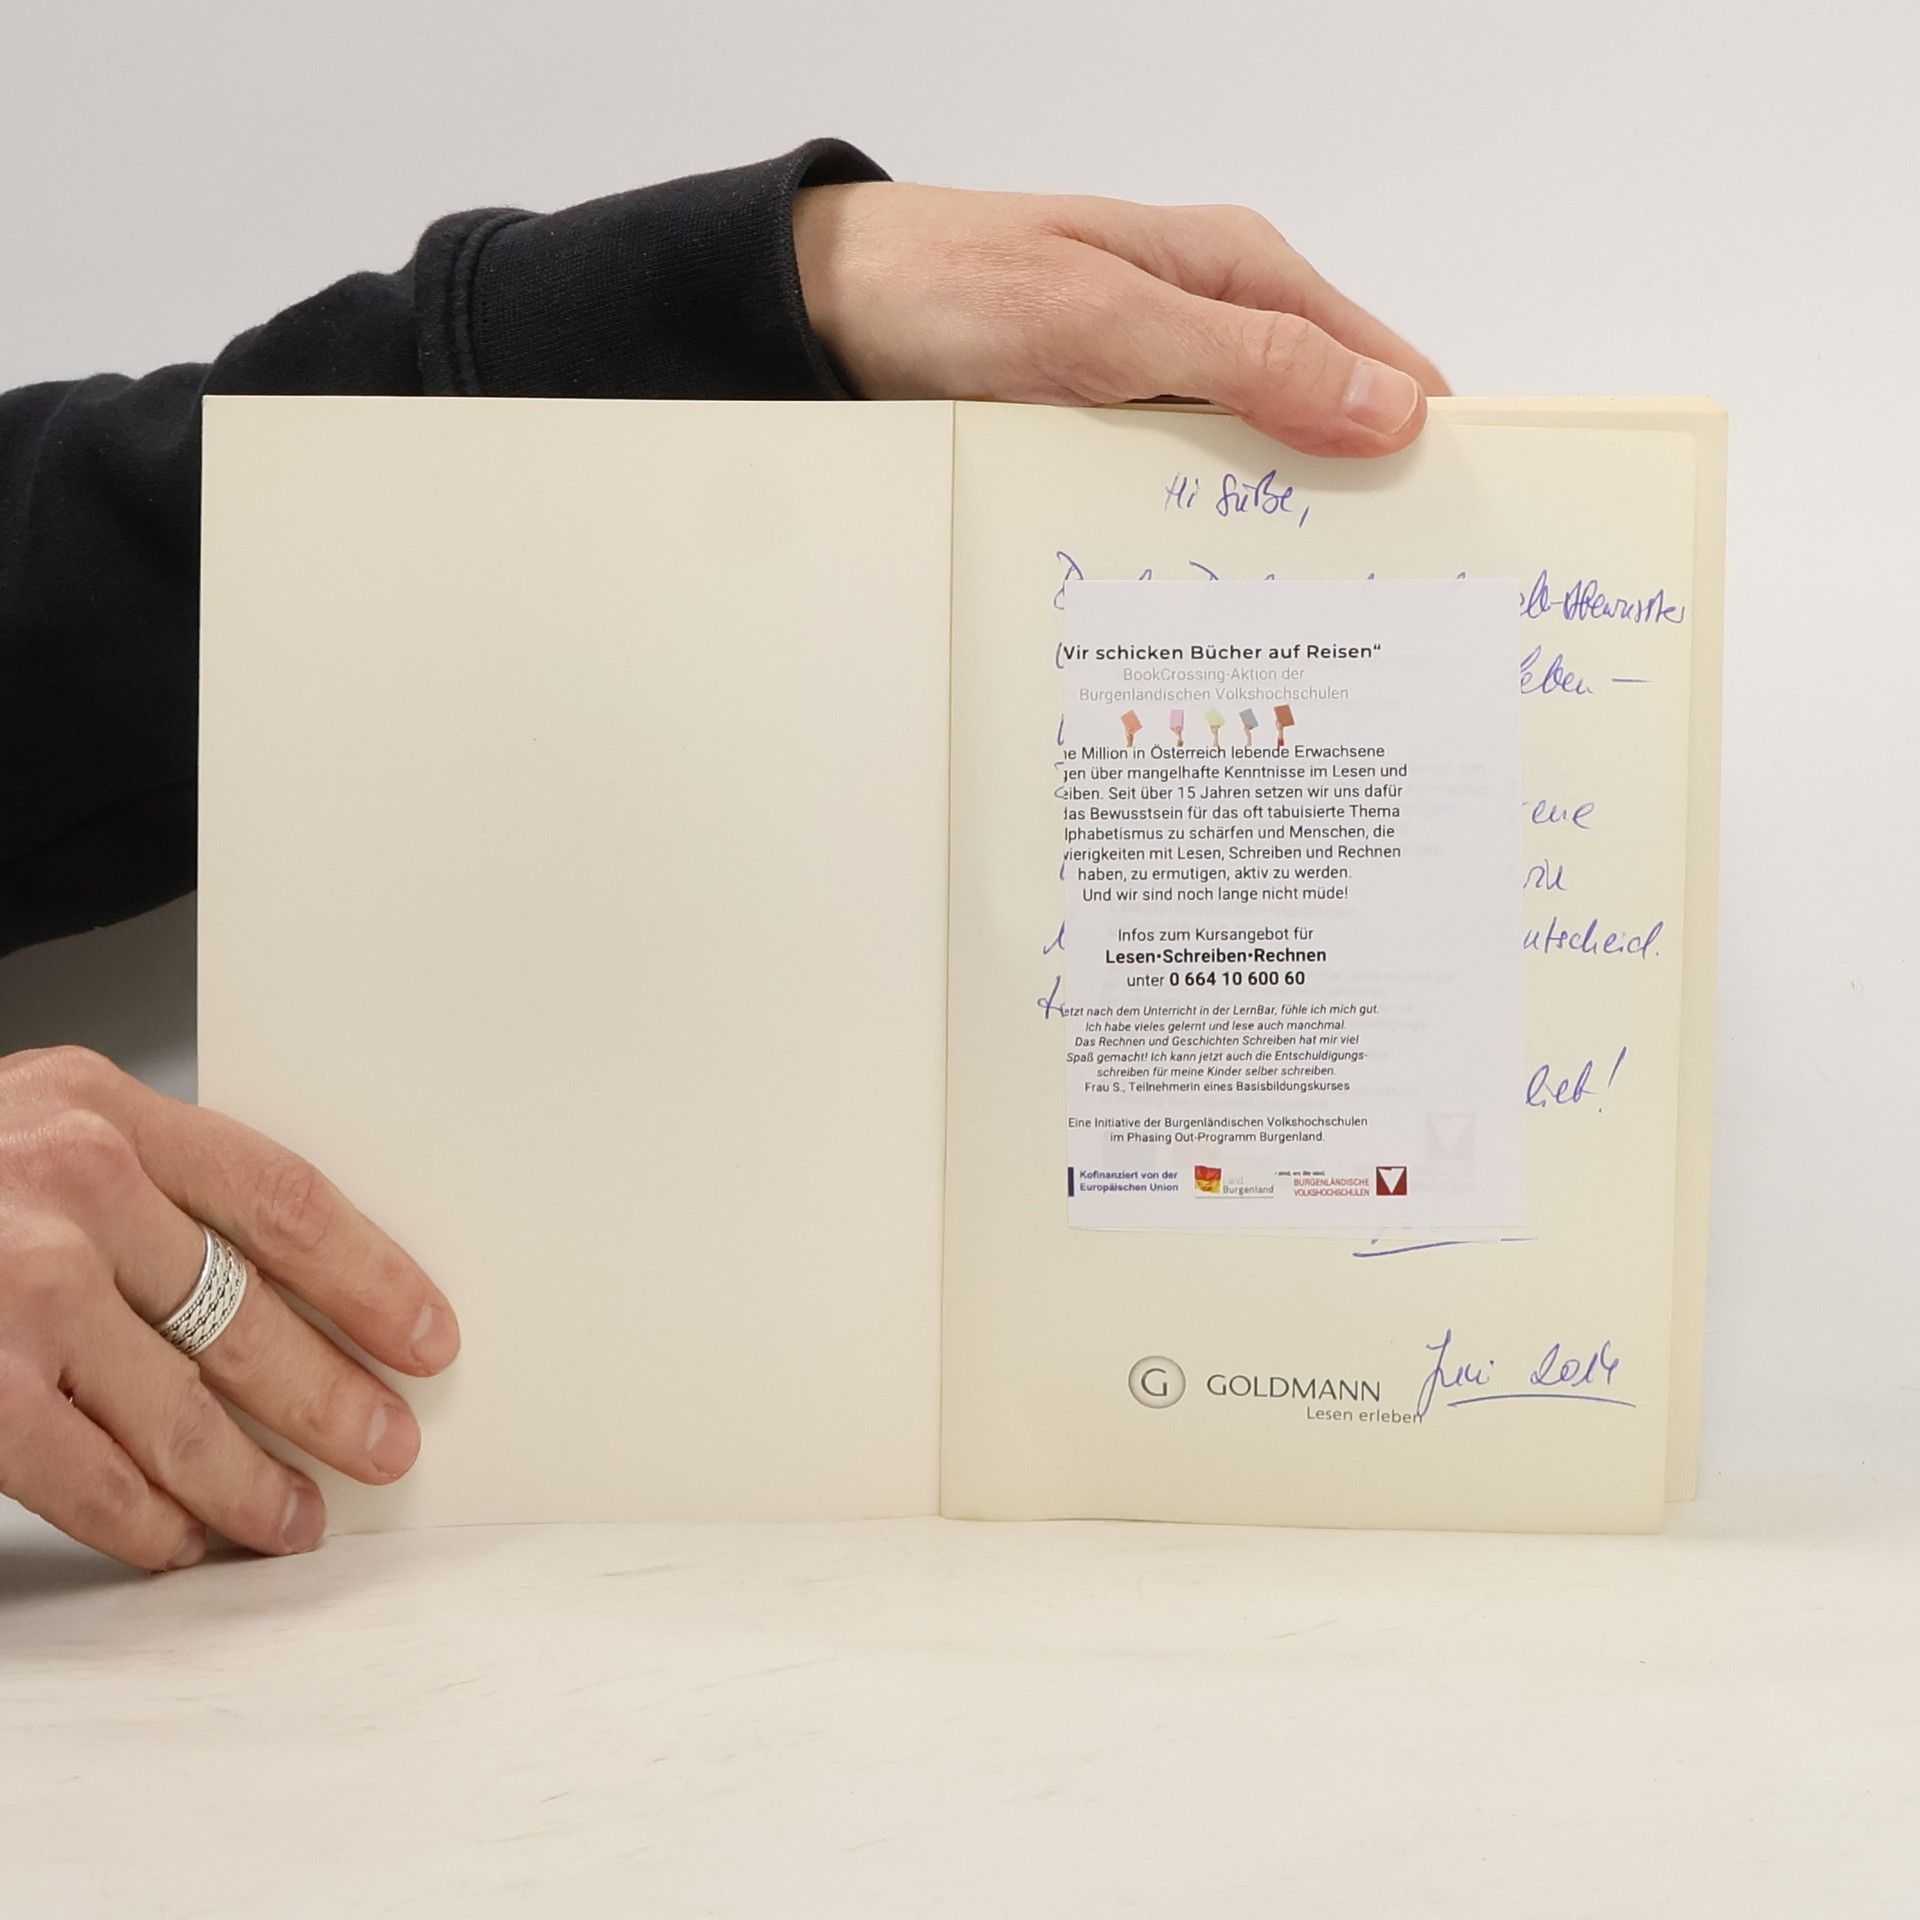 Hi Süße,
Wir schicken Bücher auf Reisen“
BookCrossing-Aktion der
Burgenländischen Volkshochschulen
ne Million in Österreich lebende Erwachsene
gen über mangelhafte Kenntnisse im Lesen und
eiben. Seit über 15 Jahren setzen wir uns dafür
das Bewusstsein für das oft tabuisierte Thema
lphabetismus zu schärfen und Menschen, die
wierigkeiten mit Lesen, Schreiben und Rechnen
haben, zu ermutigen, aktiv zu werden.
Und wir sind noch lange nicht müde!
Infos zum Kursangebot für
Lesen•Schreiben•Rechnen
unter 0 664 10 600 60
etzt nach dem Unterricht in der LernBar, fühle ich mich gut.
Ich habe vieles gelernt und lese auch manchmal.
Das Rechnen und Geschichten Schreiben hat mir viel
Spaß gemacht! Ich kann jetzt auch die Entschuldigungs-
schreiben für meine Kinder selber schreiben.
Frau S., Teilnehmerin eines Basisbildungskurses
Eine Initiative der Burgenländischen Volkshochschulen
im Phasing Out-Programm Burgenland.
Kofinanziert von der
Europäischen Union
Land
Burgenland
BURGENLÄNDISCHE
VOLKSHOCHSCHULEN
eben —
ene
utscheid.
lieb!
G GOLDMANN
Lesen erleben
Juni 2014